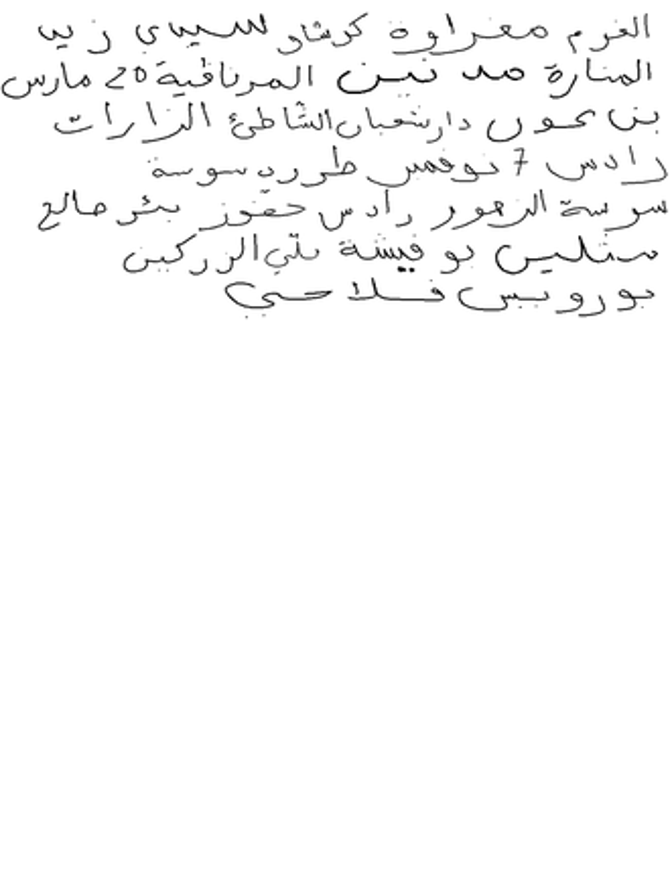 القرم مغراوة كرشاو سيدي زيد
المنارة مدنين المرناقية 20 مارس
بن عون دار شعبان الشاطئ الزارات
رادس 7 نوفمبر طرود سوسة
سوسة الزهور رادس حفوز بئر صالح
ستليس بو فيشة الزركين
بورويس فلاحي